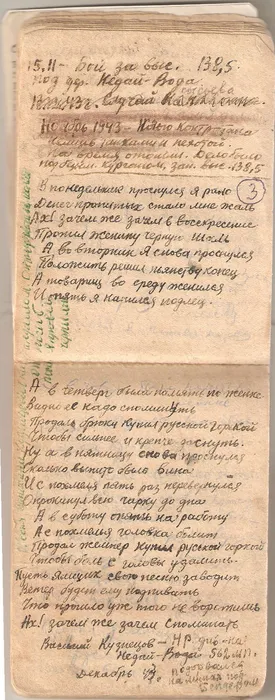 15.11 - Бой за выс. 138,5.
под дер. Недай-Вода
Ноябрь 1943 -
Немцев танками и пехотой
на время отошли.
выс. 138,5
3
В понедельник проснулся я рано
Денег пропитых стало мне жаль
Ах! зачем же зачем в воскресение
Пропил женину черную шаль
А во вторник я снова проснулся
Положить решил пянству конец
А товарищ во среду женился
И опять я напился подлец.
А в четверг была память по женке
Видно ее надо спомянуть
Продал брюки купил русской горькой
Чтобы сильнее и крепче заснуть.
Ну а в пятницу снова проснулся
Сколько выпито было вина
И с похмелья пять раз перевернулся
Опрокинул всю чарку до дна
А в субботу опять на работу
А с похмелья головка болит
Продал жилет купил русской горькой
Чтобы боль с головы удалить.
Пусть ямщик свою песню заводит
Ветер будет ему подпивать
Что прошло уж того не воротишь
Ах! зачем же зачем споминать
Василий Кузнецов - НР див-на
Недай-Вода 562 МП.
Декабрь 43 г. подорвался
на минах под